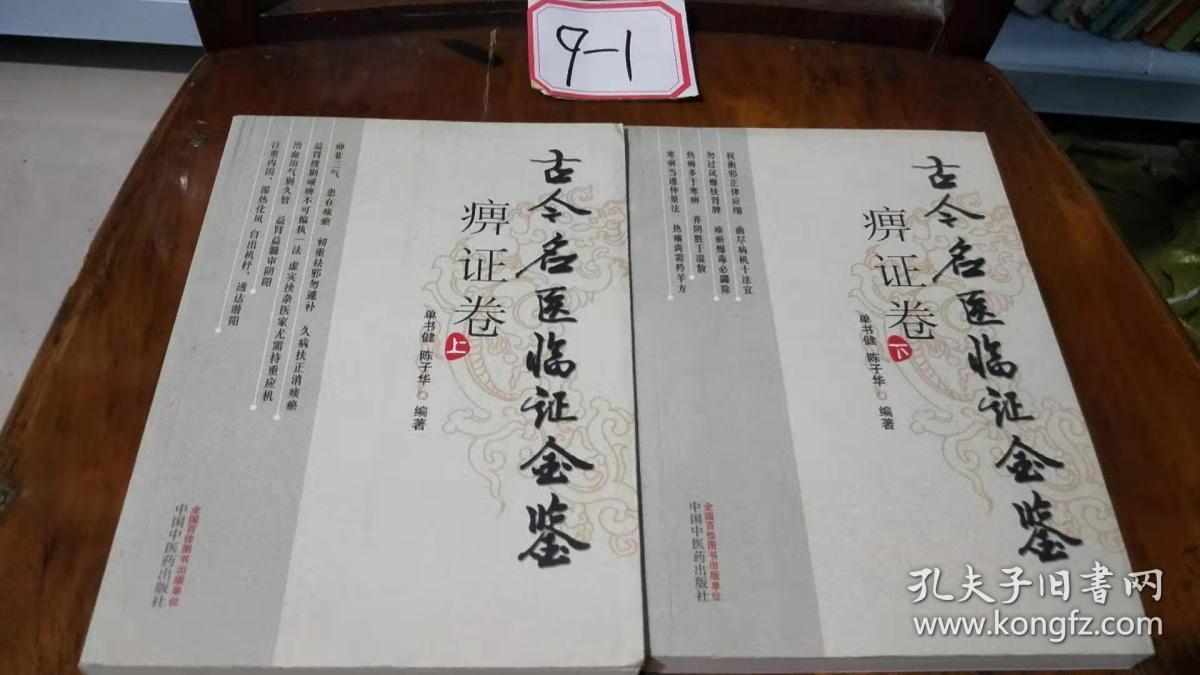 9-1
古今名医临证金鉴
痹证卷
上
单书健 陈子华 编著
痹非三气 患在痰瘀 初重祛邪勿遽补 久病扶正消痰瘀
益肾搜剔顽痹不可偏执一法 虚实挟杂医家尤需持重应机
治血治气别久暂 益肾益髓审阴阳
注重内因，湿热化风 自出机杼，透达潜阳
全国百佳图书出版单位
中国中医药出版社
古今名医临证金鉴
痹证卷
下
单书健 陈子华 编著
权衡邪正律应细 曲尽病机十法宜
勿过风燥扶肾脾 痰瘀燥毒必蠲除
热痹多于寒痹 养阴胜于温散
寒痹当遵仲景法 热痛尚需羚羊方
全国百佳图书出版单位
中国中医药出版社
孔夫子旧书网
www.kongfz.com